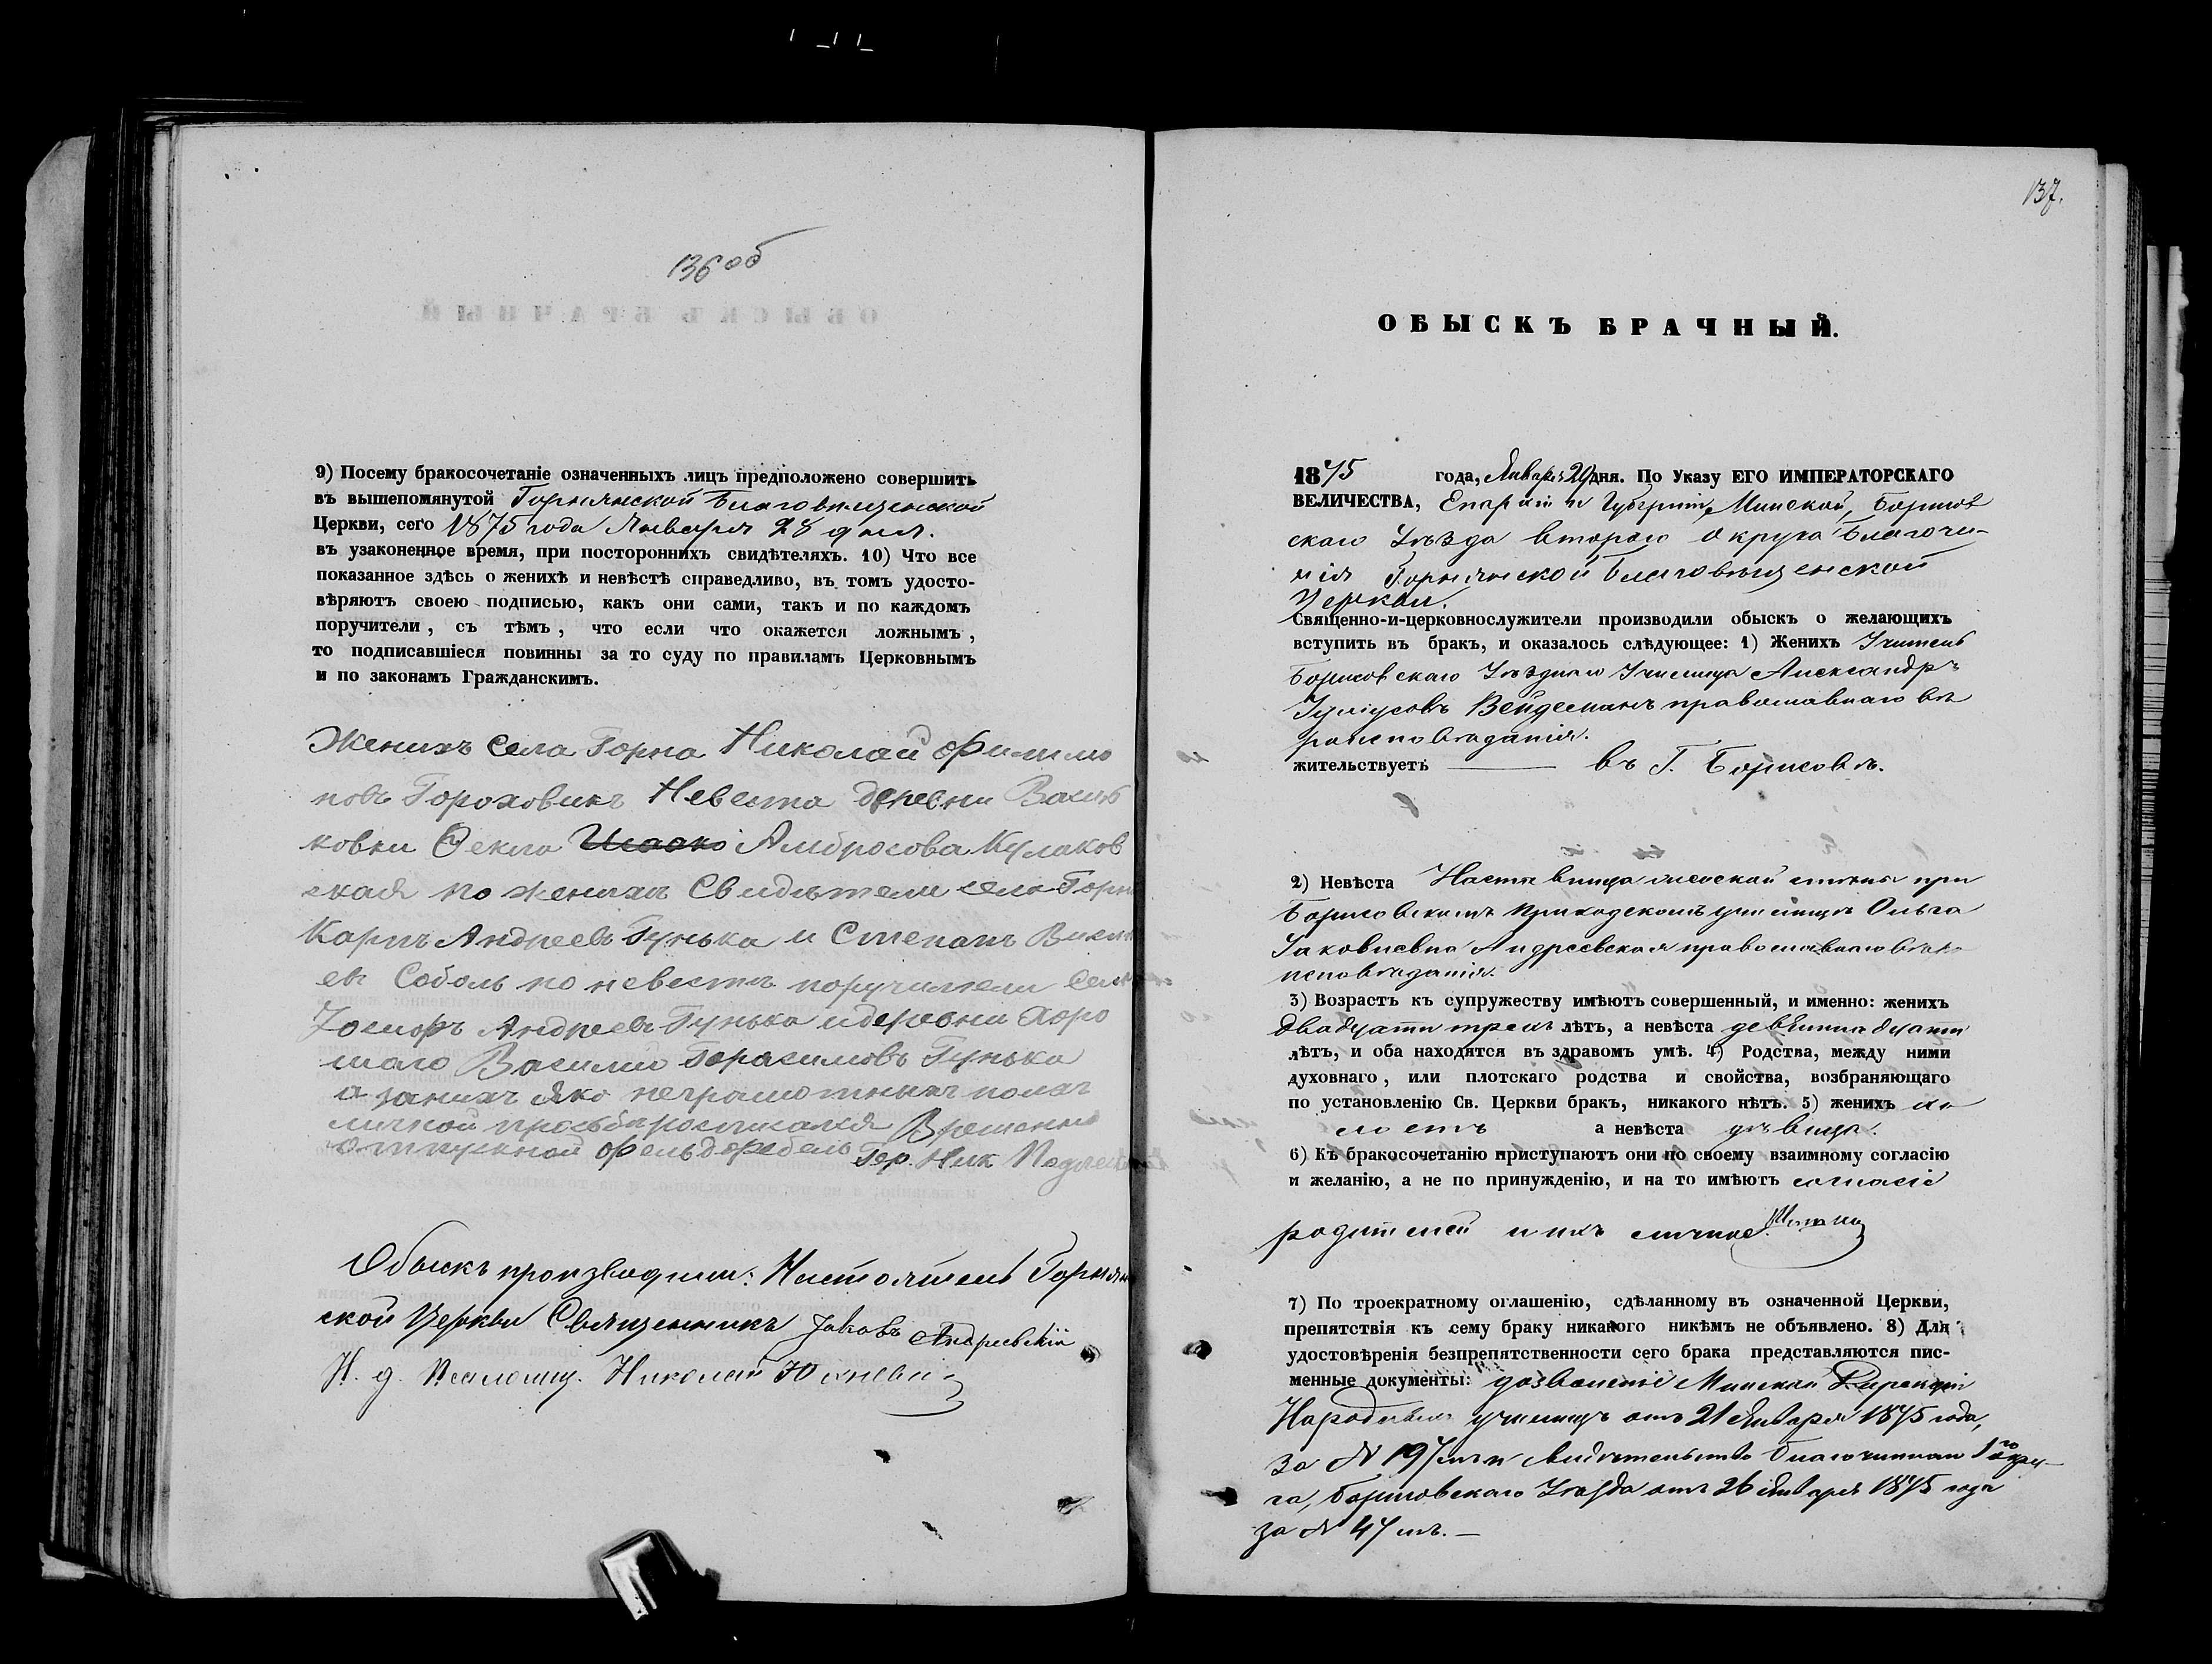 136 об
9) Посему бракосочетаніе означенныхъ лицъ предположено совершить
въ вышепомянутой Горнянской Благовѣщенской
Церкви, сего 1875 года Января 28 дня.
въ узаконенное время, при постороннихъ свидѣтеляхъ. 10) Что все
показанное здѣсь о женихѣ и невѣстѣ справедливо, въ томъ удосто-
вѣряютъ своею подписью, какъ они сами, такъ и по каждомъ
поручители, съ тѣмъ, что если что окажется ложнымъ,
то подписавшіеся повинны за то суду по правиламъ Церковнымъ
и по законамъ Гражданскимъ.
Женихъ села Горна Николай Филимо
новъ Гороховикъ Невеста деревни
ковки Ѳекла Амбросова Кулаков
ская по женихѣ Свидѣтели села Горна
Карпъ Андреевъ Гунька и Степанъ
евъ Соболь по невестѣ поручители села
Андреевъ Гунька и деревни Хоро
шаго Василий Герасимовъ Гунька
а за нихъ яко неграмотныхъ по ихъ
личной просьбе росписался Временно
отпускной Фельдфебель Гер. Ник
Обыскъ производили: Настоятель Горнян
ской Церкви Священникъ Іаковъ Андреевскій
И. д. Псаломщ. Николай Юхневи
137.
ОБЫСКЪ БРАЧНЫЙ.
1875 года, Января 29 дня. По Указу ЕГО ИМПЕРАТОРСКАГО
ВЕЛИЧЕСТВА, Епархіи и Губерніи Минской, Борисов
скаго Уѣзда втораго округа Благочи-
нія Горнянской Благовѣщенской
Церкви.
Священно-и-церковнослужители производили обыскъ о желающихъ
вступить въ бракъ, и оказалось слѣдующее: 1) Женихъ Учитель
Борисовскаго Уѣзднаго Училища Александръ
Юліусовъ Вейдеманъ православнаго вѣ
роисповѣданія.
жительствуетъ — въ Г. Борисовѣ.
2) Невѣста Наставница женской смѣны при
Борисовскомъ Приходскомъ училищѣ Ольга
Іаковлевна Андреевская православнаго вѣро-
исповѣданія.
3) Возрастъ къ супружеству имѣютъ совершенный, и именно: женихъ
двадцати трехъ лѣтъ, а невѣста девятнадцати
лѣтъ, и оба находятся въ здравомъ умѣ. 4) Родства, между ними
духовнаго, или плотскаго родства и свойства, возбраняющаго
по установленію Св. Церкви бракъ, никакого нѣтъ. 5) женихъ хо
лостъ а невѣста дѣвица.
6) Къ бракосочетанію приступаютъ они по своему взаимному согласію
и желанію, а не по принужденію, и на то имѣютъ согласіе
родителей и ихъ личное.
7) По троекратному оглашенію, сдѣланному въ означенной Церкви,
препятствія къ сему браку никакого никѣмъ не объявлено. 8) Для
удостовѣренія безпрепятственности сего брака представляются пис-
менные документы: дозволеніе Минской Дирекціи
Народныхъ училищъ отъ 21 Января 1875 года,
за № 197 мъ и свидѣтельство благочиннаго 1го окру-
га, Борисовскаго Уѣзда отъ 26 Января 1875 года
за № 47 мъ. —